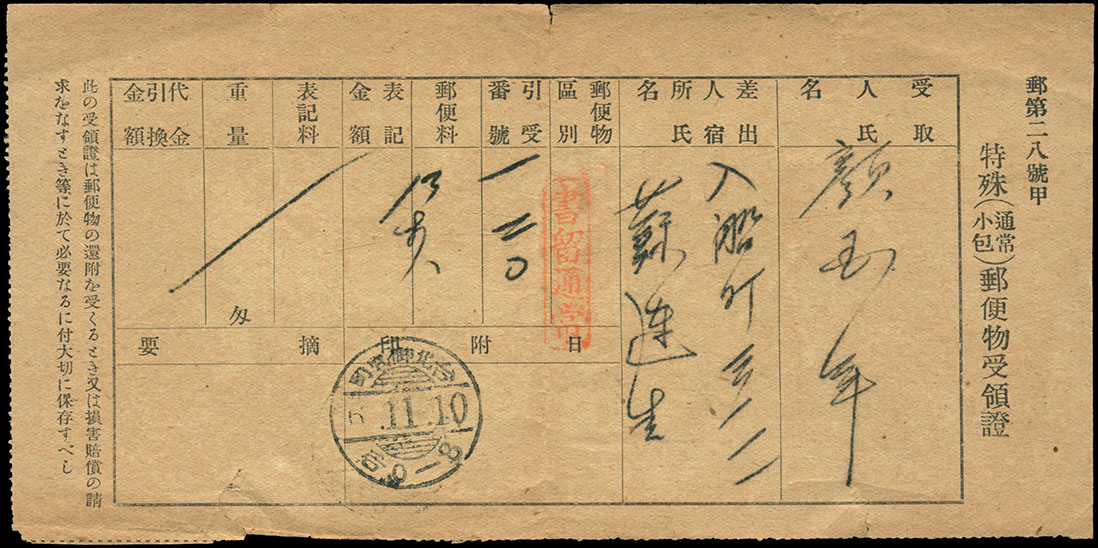 郵第二八號甲
特殊(通常小包)郵便物受領證
受取人氏名
顏
年
差出人宿所氏名
入船町
蘇連生
郵便物區別
書留通常
引受番號
一二〇
郵便料
表記金額
表記料
重量
匁
代金引換金額
日附印
摘要
台北御成町
5.11.10
后0-8
此の受領證は郵便物の還附を受くるとき又は損害賠償の請
求をなすとき等に於て必要なるに付大切に保存すべし